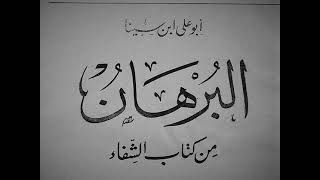 أبو علي ابن سينا
البُرْهَانُ
مِن كتَاب الشِّفَاء